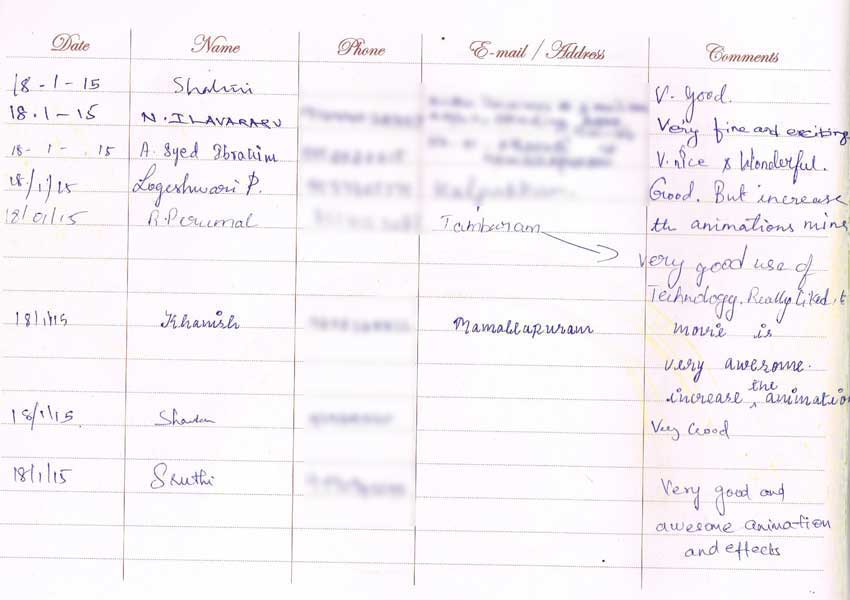 Date Name Phone E-mail / Address Comments
18 - 1 - 15 Shalini V. Good.
18.1-15 N. ILAVARASU Very fine and exciting
18 - 1 - 15 A. Syed Ibrahim V. nice & Wonderful.
18/1/15 Logeshwari P. Good. But increase
18/01/15 R. Perumal Tambaram th animations mins
Very good use of
Technology. Really liked it
18/1/15 Khanish Mamallapuram movie is
very awesome.
increase the animation
18/1/15 Very Good
18/1/15 Sruthi Very good and
awesome animation
and effects